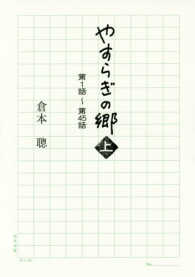 やすらぎの郷 上
第1話〜第45話
倉本 聰
No.